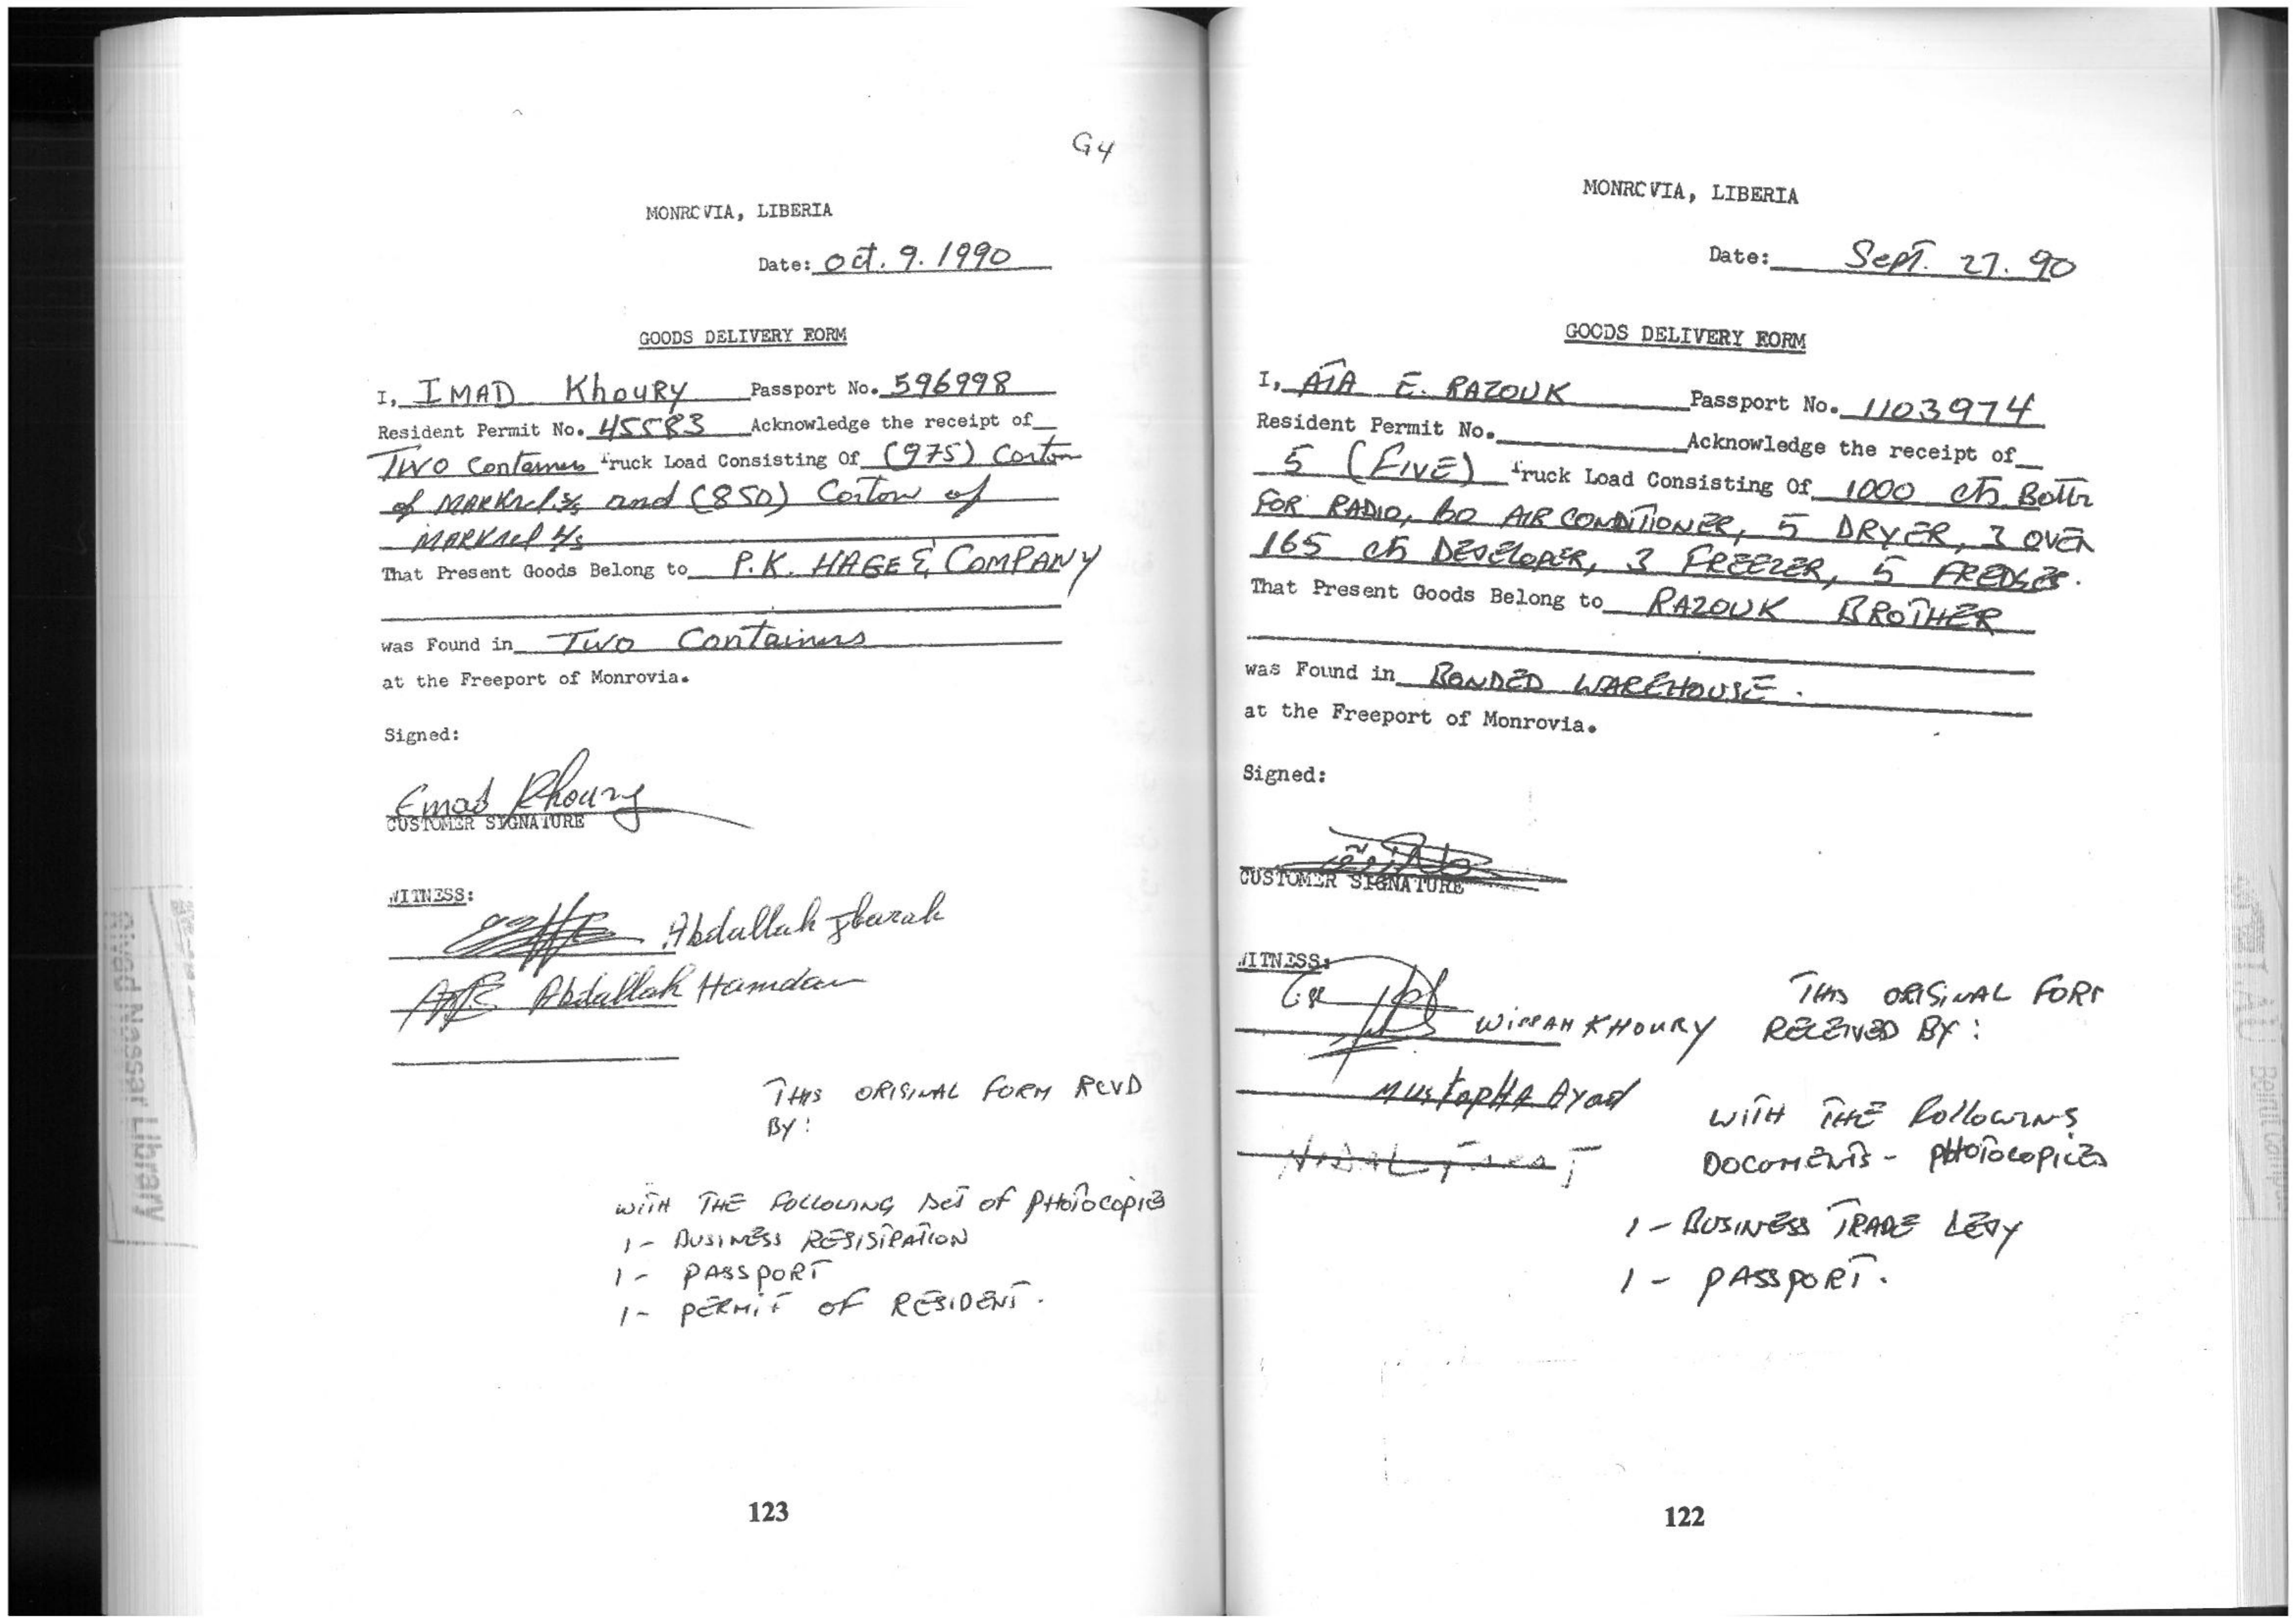 G4
MONROVIA, LIBERIA
Date: Oct. 9. 1990
GOODS DELIVERY FORM
I, IMAD KhouRY Passport No. 596998
Resident Permit No. 45583 Acknowledge the receipt of
Two Containers Truck Load Consisting Of (975) Carton
of MARKrel 5/s and (850) Carton of
MARKrel 4/s
That Present Goods Belong to P.K. HAGE & COMPANY
was Found in Two Containers
at the Freeport of Monrovia.
Signed:
Emad Khoury
CUSTOMER SIGNATURE
WITNESS:
Abdallah
Abdallah Hamdan
THIS ORIGINAL FORM RCVD
BY:
WITH THE FOLLOWING SET OF PHOTOCOPIES
1- BUSINESS REGISTRATION
1- PASSPORT
1- PERMIT OF RESIDENT.
123
MONROVIA, LIBERIA
Date: Sept. 27. 90
GOODS DELIVERY FORM
I, ATA E. RAZOUK Passport No. 1103974
Resident Permit No. Acknowledge the receipt of
5 (FIVE) Truck Load Consisting Of 1000 ctn
FOR RADIO, 60 AIR CONDITIONER, 5 DRYER, 3 OVEN
165 ctn DEVELOPER, 3 FREEZER, 5 FREDGES.
That Present Goods Belong to RAZOUK BROTHER
was Found in BONDED WAREHOUSE.
at the Freeport of Monrovia.
Signed:
CUSTOMER SIGNATURE
WITNESS:
WISSAM KHOURY
MUSTAPHA Ayad
THIS ORIGINAL FORM
RECEIVED BY:
WITH THE FOLLOWING
DOCUMENTS - PHOTOCOPIES
1 - BUSINESS TRADE LEVY
1 - PASSPORT.
122
Riyad Nassar Library
Beirut campus